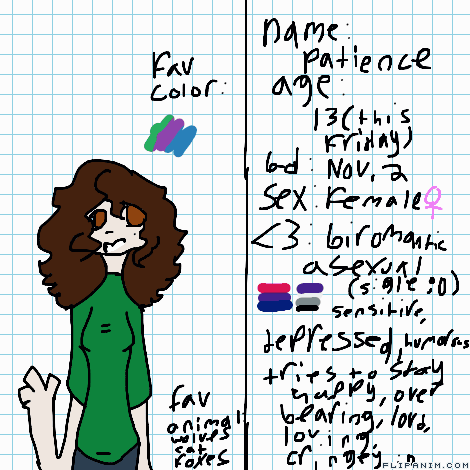 Fav
color:
fav
animal:
wolves
cat
foxes
name:
patience
age:
13(this
Friday)
bd: Nov, 2
Sex: Female♀
<3: biromantic
asexual
(single ;o)
sensitive,
depressed, humorous
tries to stay
happy, over
bearing, loud,
loving,
cringey,
FLIPANIM.COM